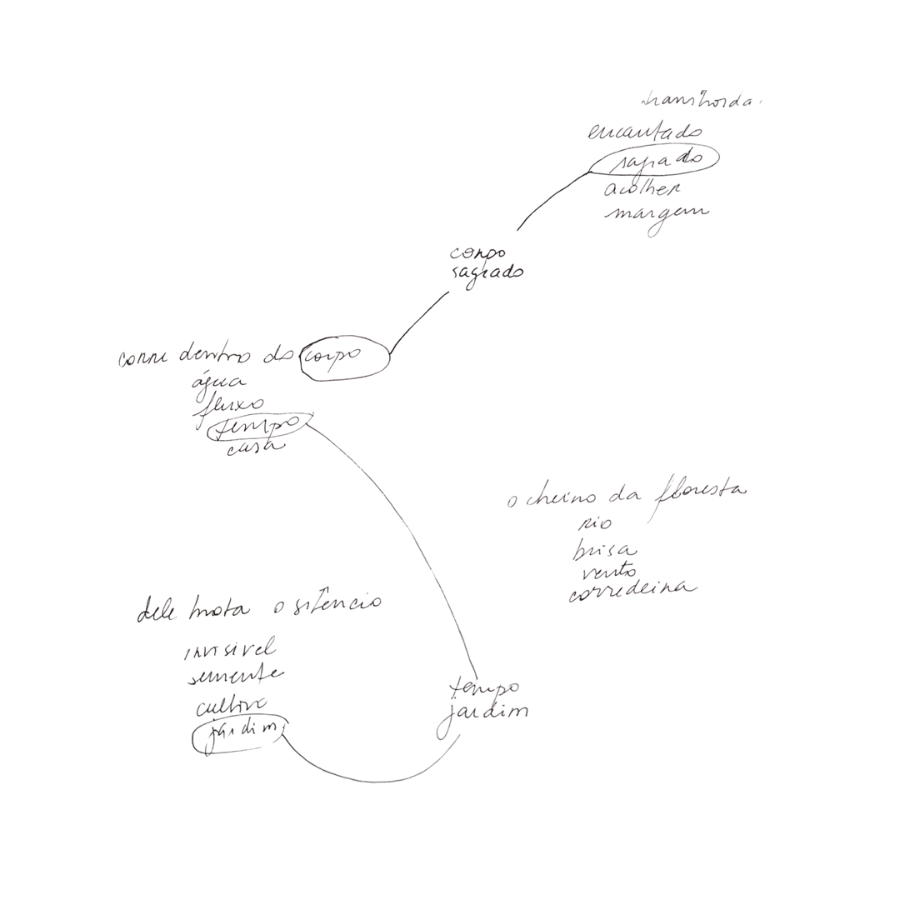 transborda.
encantado
sagrado
acolher
margem
corpo
sagrado
corre dentro do corpo
água
fluxo
tempo
casa
o cheiro da floresta
rio
brisa
vento
corredeira
dele brota o silêncio
invisível
semente
cultivo
jardim
tempo
jardim